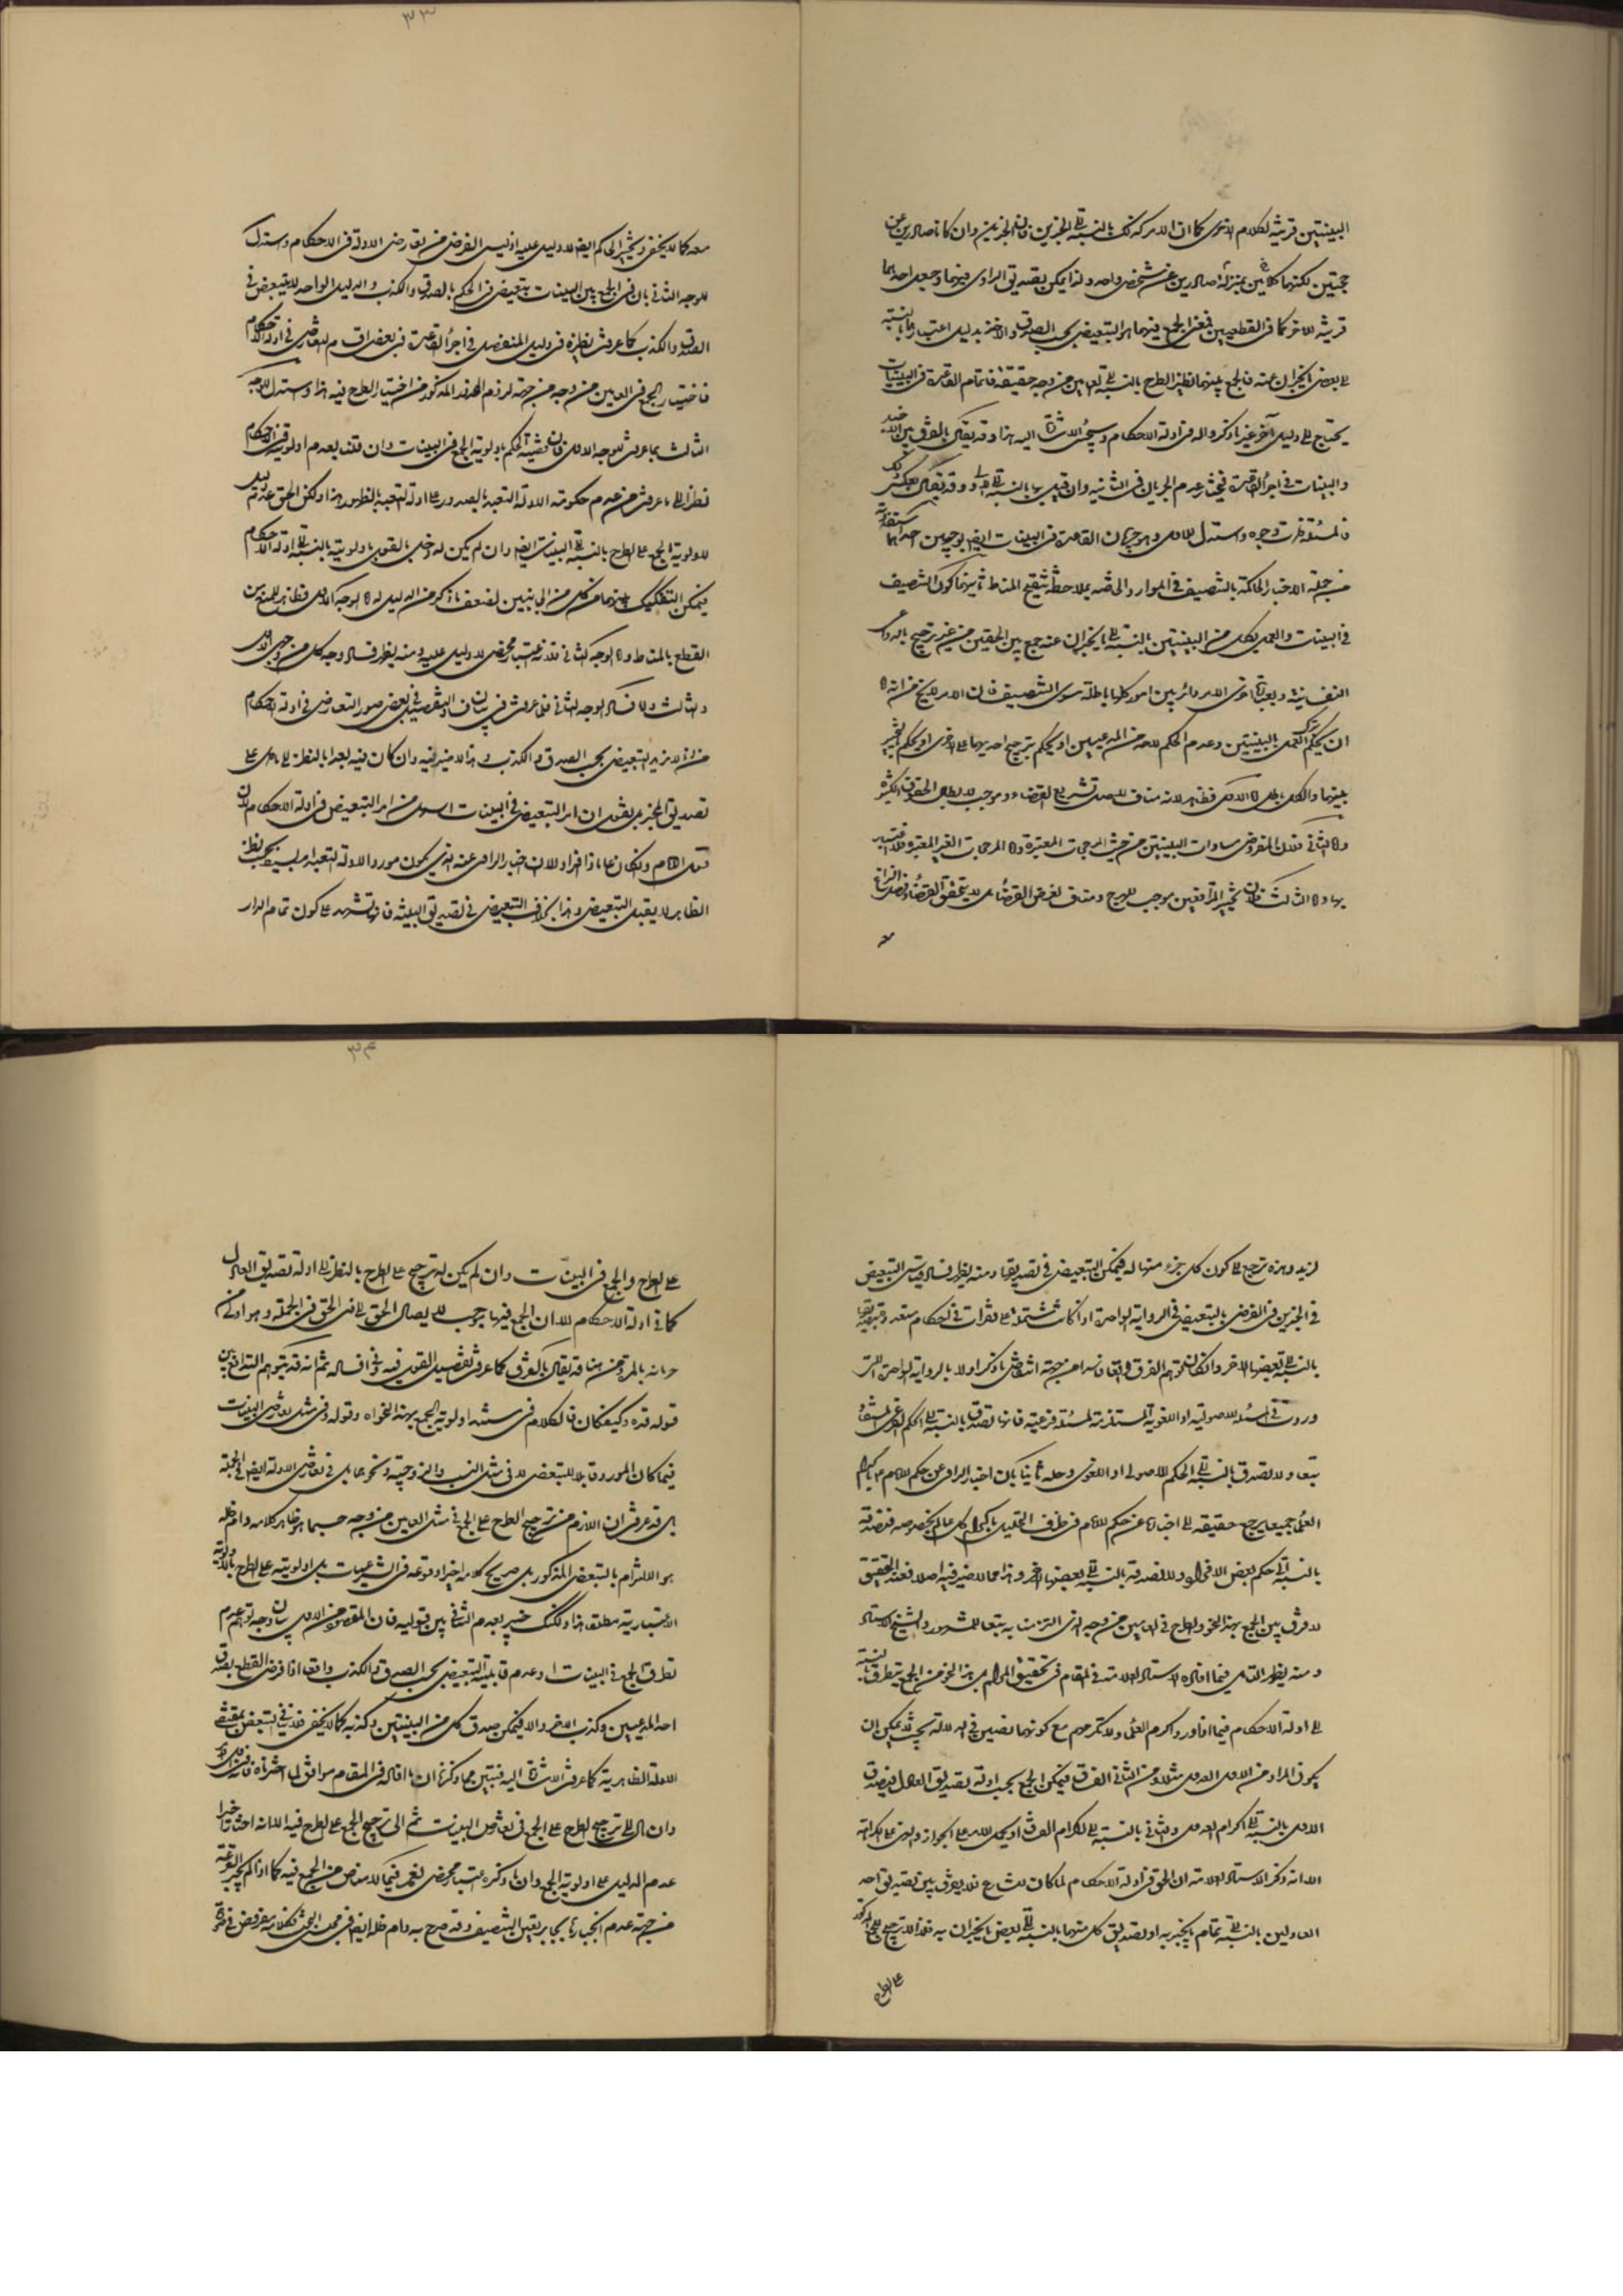 البينتين قرينة لكلام الاخرى كما ان الامر كذلك بالنسبة الى الخبرين فان الخبرين وان كانا صادرين عن
حجتين لكنهما بمنزلة صادرين عن شخص واحد ولذا يمكن تصديق الراوى فيهما وجعل احدهما
قرينة للاخر كما فى القطعيين فمعنى الجمع فيهما هو التبعيض بحسب الصدق والاخذ بدليل اعتبارهما بالنسبة
الى بعض ما يخبران عنه فالجمع بينهما نظير الطرح بالنسبة الى العامين من وجه حقيقة فاتمام القاعدة فى البينات
يحتاج الى دليل آخر غير ما ذكروا له فى ادلة الاحكام وسيجئ الاشارة اليه هذا وقد يقال بالفرق بين الاخبار
والبينات فى اجراء القاعدة فيختار عدم الجريان فى الثانية وان قيل بها بالنسبة الى الاولى وقد يقال بعكس ذلك
فالمسئلة ذات وجوه واستدل للاول وهو جريان القاعدة فى البينات ايضا بوجهين احدهما استفادته
من جملة الاخبار الحاكمة بالتنصيف فى الموارد الخاصه بملاحظة تنقيح المناط ثانيهما كون التنصيف
فى البينات والعمل بكل من البينتين بالنسبة الى ما يخبران عنه جمع بين الحقين من غير ترجيح بالدواعى
النفسانية وبعبارة اخرى الامر دائر بين امور كلها باطلة سوى التنصيف فان الامر لا يخ من انه اما
ان يحكم بترك العمل بالبينتين وعدم الحكم لاحد من المدعيين او يحكم بترجيح احديهما على الاخرى او يحكم بالتخيير
بينهما والكل باطل اما الاول فظاهر لانه مناف لاصل تشريع القضاء وموجب لابطال الحقوق الكثيرة
واما الثانى فلان المفروض مساوات البينتين من حيث المرجحات المعتبرة واما المرجحات الغير المعتبرة فلا عبرة
بها واما الثالث فلان تخيير المترافعين موجب للهرج ومناف لغرض القضاء بل لا يتحقق القضاء وفصل النزاع
معه
٣٣
معه كما لا يخفى وتخيير الحاكم ايضا لا دليل عليه اذ ليس الفرض من تعارض الادلة فى الاحكام واستدل
للوجه الثانى بان فى الجمع بين البينات تبعيض فى الحكم بالصدق والكذب والدليل الواحد لا يتبعض فى
الصدق والكذب كما عرفت نظيره فى دليل المفصل فى اجراء القاعدة فى بعض اقسام التعارض فى ادلة الاحكام
فاختيار الجمع فى العامين من وجه من جهة لزوم المحذور المذكور من اختيار الطرح فيه هذا واستدل للوجه
الثالث بما عرفت للوجه الاول فان قضيته الحكم باولوية الجمع فى البينات وان قلنا بعدم اولويته فى الاحكام
نظرا الى ما عرفت من عدم حكومة الادلة التعبد بالصدور على ادلة التعبد بالظهور هذا ولكن الحق عدم الدليل
لاولوية الجمع على الطرح بالنسبة الى البينات ايضا وان لم يكن له دخل بالقول باولويته بالنسبة الى ادلة الاحكام
فيمكن التفكيك بينهما من كل من الجانبين لضعف ما ذكر من الدليل له اما الوجه الاول فظاهر للمنع من
القطع بالمناط واما الوجه الثانى فلانه اعتبار محض لا دليل عليه ومنه يظهر فساد وجه كل من وجهى الاول
والثالث واما فساد الوجه الثانى فلما عرفت فى بيان التفصيل فى بعض صور التعارض فى ادلة الاحكام
من انه لا يزيد التبعيض بحسب الصدق والكذب وهذا لا ضير فيه وان كان فيه بعد بالنظر الى ما دل على
تصديق المخبر بل نقول ان امر التبعيض فى البينات اسهل من امر التبعيض فى ادلة الاحكام لان
قول الامام ولو كان عاما ذا افراد الا ان اخبار الراوى عنه الذى يكون مورد الادلة التعبد امر بسيط بحسب نظر
الظاهر لا يقبل التبعيض وهذا بخلاف التبعيض فى تصديق البينة فانها تشهد على كون تمام الدار
لزيد وهذه ترجع الى كون كل جزء منها له فيمكن التبعيض فى تصديقها ومنه يظهر فساد قياس التبعيض
فى الخبرين فى الفرض بالتبعيض فى الرواية الواحدة اذا كانت مشتملة على فقرات فى احكام متعددة وتصديقها
بالنسبة الى بعضها الاخر
وردت فى المسئلة الاصولية او اللغوية المستلزمة لمسئلة فرعية فانها تصدق بالنسبة الى الحكم الفرعى
تبعا ولا تصدق بالنسبة الى الحكم الاصولى او اللغوى وحله ثانيا بان اخبار الراوى عن حكم الامام ع باكرام
العلماء جميعا يرجع حقيقة الى اخباره عن حكم الامام فى طرف التحليل باكرام كل عالم بخصوصه فنصدقه
بالنسبة الى حكم بعض الافراد ولا نصدقه بالنسبة الى بعضها الاخر وهذا مما لا ضير فيه اصلا فعند التحقيق
لا فرق بين الجمع بهذا النحو والطرح فى العامين من وجه الذى التزمنا به تبعا للمشهور والشيخ الاستاد
ومنه يظهر التامل فيما افاده الاستاد العلامة فى المقام فى تحقيق المرام بل هذا النحو من الجمع يتطرق بالنسبة
الى ادلة الاحكام فيما اذا ورد اكرم العلماء ولا تكرمهم مع كونهما نصين فى الدلالة بحيث لا يمكن ان
يكون المراد من الاول العدول مثلا ومن الثانى الفساق فيمكن الجمع بحسب ادلة تصديق العادل فيصدق
الاول بالنسبة الى اكرام العدول والثانى بالنسبة الى اكرام الفساق او يحمل الامر على الجواز والنهى على الكراهة
الا انه ذكر الاستاد العلامة ان الحق فى ادلة الاحكام لما كان للشارع فلا يفرق بين تصديق احد
العادلين بالنسبة الى تمام ما يخبر به او تصديق كل منهما بالنسبة الى بعض ما يخبران به فلذا لا ترجيح للجمع المذكور
على الطرح
٣٤
على الطرح والجمع فى البينات وان لم يكن له ترجيح على الطرح بالنظر الى ادلة تصديق العادل
كما فى ادلة الاحكام الا ان الجمع فيها موجب لايصال الحق الى ذى الحق فى الجملة وهو اولى من
حرمانه بالمرة ومن هنا قد يقال بالفرق كما عرفت تفصيل القول فيه وفى افساده ثم انه قد يتوهم التدافع بين
قوله قده وكيف كان فالكلام فى مستند اولوية الجمع بهذا النحو اه وقوله وفى مثل تعارض البينات
فيما كان المورد قابلا للتبعض لا فى مثل النسب والزوجية ونحوهما بل فى تعارض الادلة ايضا فى الجملة
بل قد عرفت ان اللازم من ترجيح الطرح على الجمع فى مثل العامين من وجه حسبما هو ظاهر كلامه دام ظله
هو الالتزام بالتبعض المذكور بل صريح كلامه اخيرا وقوعه فى الشرعيات بل اولويته على الطرح بالاولوية
الاعتبارية مطلقا هذا ولكنك خبير بعدم التنافى بين قوليه فان المقصود من الاول بيان وجه توهم عدم
تطرق الجمع فى البينات وعدم قابلية التبعيض بحسب الصدق والكذب واقعا اذا فرض القطع بصدق
احد المدعيين وكذب الاخر والا فيمكن صدق كل من البينتين وكذبه كما لا يخفى فلا ينافى التبعض بمقتضى
الادلة الظاهرية كما عرفت الاشارة اليه فتبين مما ذكرنا ان ما افاده فى المقام موافق لما اخترناه
وان مال الى ترجيح الطرح على الجمع فى تعارض البينات ثم الى ترجيح الجمع على الطرح فيه الا انه اختار اخيرا
عدم الدليل على اولوية الجمع وان ما ذكره اعتبار محض نعم فيما لا مناص من الجمع فيه كما اذا لم يجر القرعة
من جهة عدم انجبارها بجابر يتعين التنصيف وقد صرح به دام ظله ايضا فى مجلس البحث فكلامه مفروض فى صورة